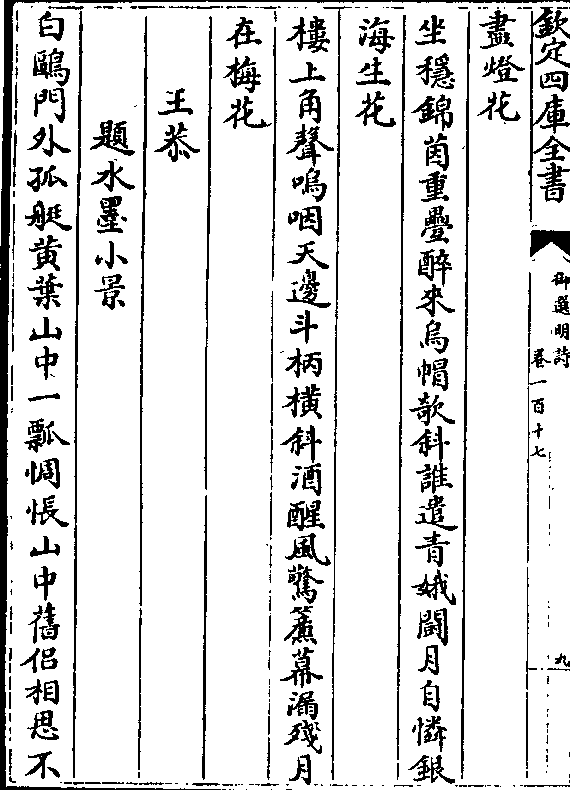 欽定四庫全書
御選明詩
卷一百十七
九
盡燈花
坐穩錦茵重疊醉來烏帽欹斜誰遣青娥鬬月自憐銀
海生花
樓上角聲嗚咽天邊斗柄橫斜酒醒風驚簾幕漏殘月
在梅花
王恭
題水墨小景
白鷗門外孤艇黄葉山中一瓢惆悵山中舊侣相思不